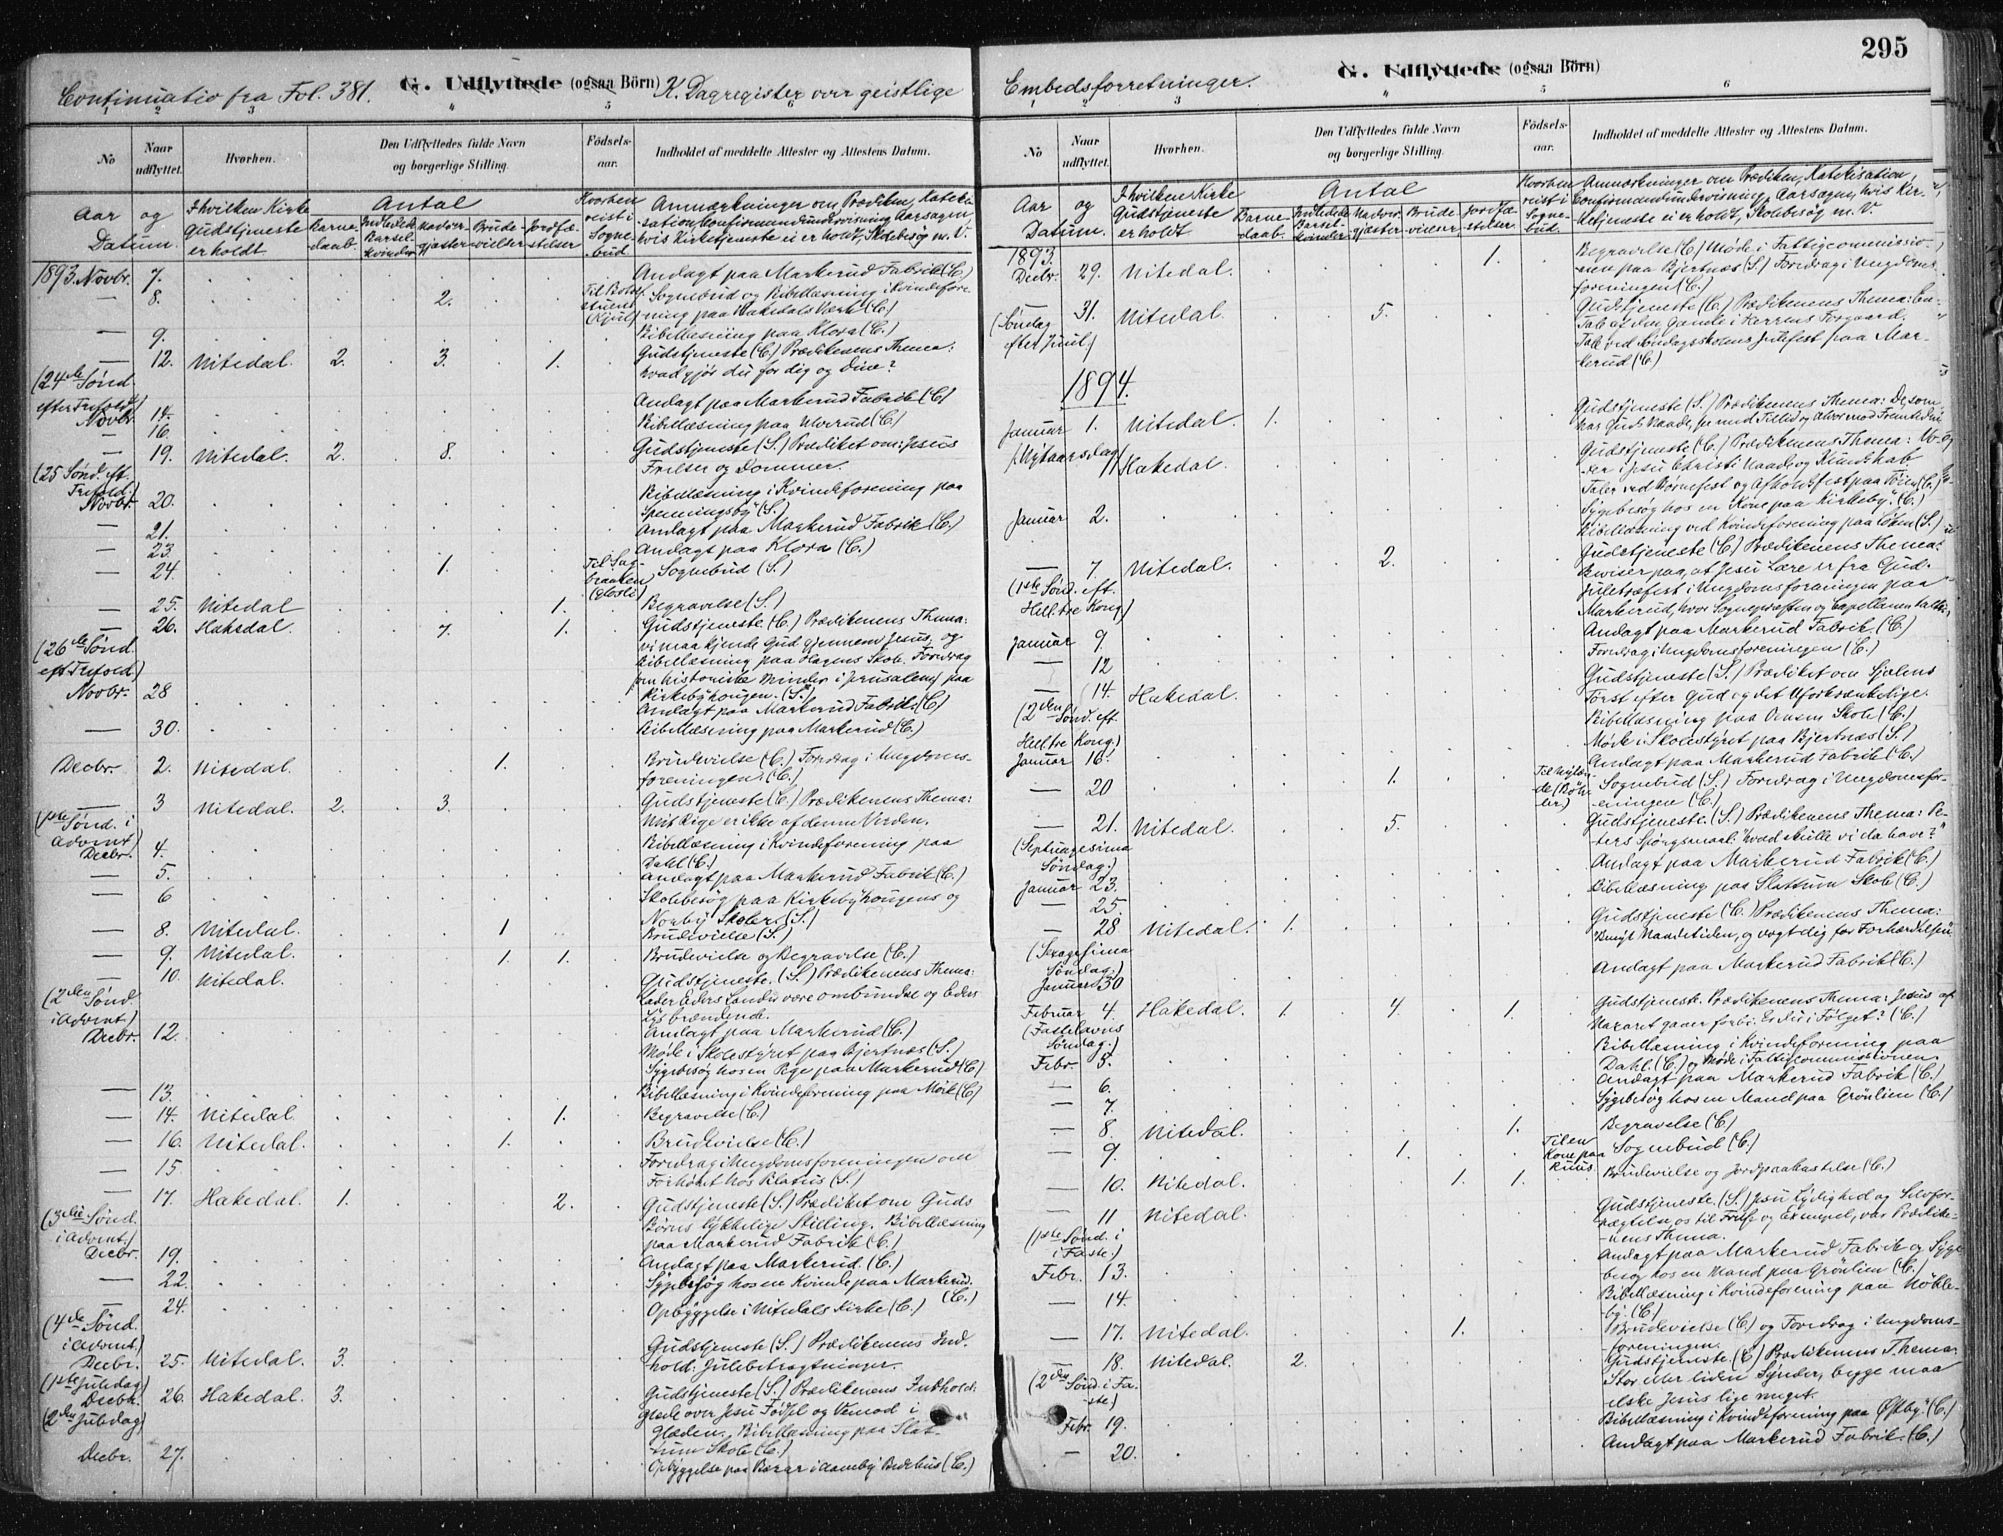 295
Continuatio fra Fol. 381. G. Udflyttede (ogsaa Börn) K. Dagregister over geistlige
1 2 3 4 5 6
No
Naar udflyttet.
Hvorhen.
Den Udflyttedes fulde Navn
og borgerlige Stilling.
Fødsels-
aar.
Indholdet af meddelte Attester og Attestens Datum.
Aar og
Datum.
I hvilken Kirke
Gudstjeneste
er holdt
Antal
Barne-
daab.
Indledte
Barsel-
kvinder
Nadver-
gjæster
Brude-
vielser
Jordfæ-
stelser
Hvorhen
reist i
Sogne-
bud.
Anmærkninger om Prædiken, Kateki-
sation, Confirmandundervisning, Aarsagen,
hvis Kirketjeneste ei er holdt, Skolebesøg m. V.
1893. Novbr. 7. Andagt paa Markerud Fabrik (C.)
— 8. 2. Sognebud og Bibellæsning i Kvindefore-
ning paa Hakedals Værk (C.)
— 9. Bibellæsning paa Klora (C.)
— 12. Nitedal. 2. 3. 1. Gudstjeneste (C.) Prædikenens Thema:
(24de Sønd. Hvad gjør du for dig og Dine?
efter Trefold.)
Novbr. 14. Andagt paa Markerud Fabrik (C.)
— 16. Bibellæsning paa Ulverud (C.)
— 19. Nitedal. 2. 8. Gudstjeneste (S.) Prædiket om: Jesus
(25 Sønd. eft. Frelser og Dommer.
Trefold.)
Novbr. 20. Bibellæsning i Kvindeforening paa
Spenningsby (S.)
— 21. Andagt paa Markerud Fabrik (C.)
— 23 Andagt paa Klora (C.)
— 24. 1. Sognebud (S.)
— 25. Nitedal 1. Begravelse (S.)
— 26. Hakedal. 7. 1. Gudstjeneste (C.) Prædikenens Thema:
(26de Sønd. vi maa kjende Gud gjennem Jesus, og
eft. Trefold.) Bibellæsning paa Hagens Skole. Foredrag
(om historiske Minder i Jerusalem) paa
Kirkebyhougen. (S.)
Novbr. 28 Andagt paa Markerud Fabrik (C.)
— 30. Bibellæsning paa Markerud (C.)
Decbr. 2. Nitedal. 1. Brudevielse (C.) Foredrag i Ungdoms-
foreningen. (C.)
— 3 Nitedal. 2. 3. Gudstjeneste (C.) Prædikenens Thema:
(1ste Sønd. i Mit Rige er ikke af denne Verden.
Advent)
Decbr. 4. Bibellæsning i Kvindeforening paa
Dahl (C.)
— 5. Andagt paa Markerud Fabrik (C.)
— 6 Skolebesøg paa Kirkebyhougens og
Norby Skoler. (S.)
— 8. Nitedal. 1 Brudevielse (S.)
— 9. Nitedal. 1. 1. Brudevielse og Begravelse (C.)
— 10. Nitedal. Gudstjeneste. (S.) Prædikenens Thema:
(2den Sønd. Lader Eders Lænder være ombundne og Eders
i Advent) Lys brændende.
Decbr. 12. Andagt paa Markerud (C.)
Møde i Skolestyret paa Bjertnæs (S.)
Sygebesøg hos en Pige paa Markerud (C.)
— 13. Bibellæsning i Kvindeforening paa Mørk (C)
— 14. Nitedal 1. Begravelse (C.)
— 16. Nitedal. 1. Brudevielse (C.)
— 15. Foredrag i Ungdomsforeningen om
Forhøret hos Pilatus (S.)
— 17. Hakedal. 1. 2. Gudstjeneste (S.) Prædiket om Guds
(3die Sønd. Børns lykkelige Stilling. Bibellæsning
i Advent.) paa Markerud Fabrik (C.)
Decbr. 19. Andagt paa Markerud. (C.)
— 22. Sygebesøg hos en Kvinde paa Markerud. (C.)
— 24. Opbyggelse i Nitedals Kirke (C.)
(4de Sønd.
i Advent.)
Decbr. 25. Nitedal. 3. Gudstjeneste (S.) Prædikenens Ind-
(1ste Juledag) hold: Julebetragtninger.
Decbr. 26. Hakedal. 3. Gudstjeneste (S.) Prædikenens Indhold:
(2den Juledag) Glæde over Jesu Fødsel og Vemod i
Glæden. Bibellæsning paa Slat-
tum Skole (C.)
Decbr. 27. Opbyggelse paa Bedehus (C.)
Embedsforretninger. G. Udflyttede (ogsaa Börn)
1 2 3 4 5 6
No
Naar udflyttet.
Hvorhen.
Den Udflyttedes fulde Navn
og borgerlige Stilling.
Fødsels-
aar.
Indholdet af meddelte Attester og Attestens Datum.
Aar og
Datum.
I hvilken Kirke
Gudstjeneste
er holdt
Antal
Barne-
daab.
Indledte
Barsel-
kvinder
Nadver-
gjæster
Brude-
vielser
Jordfæ-
stelser
Hvorhen
reist i
Sogne-
bud.
Anmærkninger om Prædiken, Katekisation,
Confirmandundervisning, Aarsagen, hvis Kir-
ketjeneste ei er holdt, Skolebesøg m. V.
1893.
Decbr. 29. Nitedal 1. Begravelse (C) Møde i Fattigcommissio-
nen paa Bjertnæs (S.) Foredrag i Ungdoms-
foreningen (C.)
— 31. Nitedal. 5. Gudstjeneste (C.) Prædikenens Thema: En
(Søndag Tale af den Gamle i Herrens Forgaard.
efter Juul.) Tale ved Søndagsskolens Julefest paa Mar-
kerud (C)
1894.
Januar 1. Nitedal 1. Gudstjeneste (S.) Prædikenens Thema: De som
har Guds Naade, se med Tillid og Alvor mod Fremtiden
(Nytaarsdag) Hakedal. Gudstjeneste (C.) Prædikenens Thema: Vo-
xer i Jesu Christi Naade og Kundskab
Januar 2. Sygebesøg hos en Kone paa Kirkeby. (C.)
Bibellæsning ved Kvindeforening paa (S.)
— 7. Nitedal. 2. Gudstjeneste (C.) Prædikenens Thema:
(1ste Sønd. eft. Beviser paa, at Jesu Lære er fra Gud.
Hell. tre Kong.) Juletræfest i Ungdomsforeningen paa
Markerud, hvor Sognepræsten og Capellanen talte.
Januar 9 Andagt paa Markerud Fabrik. (C.)
— 12 Foredrag i Ungdomsforeningen (C.)
— 14. Hakedal Gudstjeneste (S.) Prædiket om Sjelens
(2den Sønd. eft. Tørst efter Gud og det Uforkrænkelige.
Hell. tre Kong.) Bibellæsning paa Skole (C.)
Møde i Skolestyret paa Bjertnæs (S.)
Januar 16. Andagt paa Markerud Fabrik (C.)
— 20 1. Sognebud (S.) Foredrag i Ungdomsfor-
eningen (C.)
— 21. Nitedal. 5. Gudstjeneste. (S.) Prædikenens Thema: Pe-
(Septuagesima ters Spørgsmaal: "Hvad skulle vi da have?"
Søndag.)
Januar 23. Andagt paa Markerud Fabrik (C.)
— 25. Bibellæsning paa Slattum Skole (C.)
— 28 Nitedal. 1. Gudstjeneste (C.) Prædikenens Thema:
(Sexagesima Benyt Naadetiden, og vogt dig for Forhærdelsen
Søndag.)
Januar 30 Andagt paa Markerud Fabrik (C.)
Februar 4. Hakedal 1. 4. 1. Gudstjeneste. Prædikenens Thema: Jesus af
(Fastelavns Nazaret gaaer forbi. Er du i Følget? (C.)
Søndag.)
Febr. 5. Bibellæsning i Kvindeforening paa
Dahl. (C.) og Møde i Fattigcommissionen
— 6. Andagt paa Markerud Fabrik (C.)
— 7. Sygebesøg hos en Mand paa Grønlien (C.)
— 8. Nitedal. 1. Begravelse (C)
— 9. 1. Til en Kone paa Ruus. Sognebud (C.)
— 10. Nitedal. 1. 1. Brudevielse og Jordpaakastelse (C.)
— 11 Nitedal. Gudstjeneste. (S.) Jesu Lydighed og Selvfor-
(1ste Sønd. i nægtelse, os til Frelse og Exempel, var Prædike-
i Faste.) nens Thema.
Febr. 13. Andagt paa Markerud Fabrik og Syge-
besøg hos en Mand paa Grønlien (C.)
— 14. Bibellæsning i Kvindeforening paa Møble-
by. (C.)
— 17. Nitedal 1. Brudevielse (C.) og Foredrag i Ungdoms-
foreningen.
— 18. Nitedal. 2. Gudstjeneste (C) Prædikenens Thema:
(2den Sønd. i Fa- Stor eller liden Synder, begge maa
ste) elske Jesus lige meget.
Febr. 19. Bibellæsning i Kvindeforening paa Østby. (C.)
— 20. Andagt paa Markerud Fabrik. (C.)